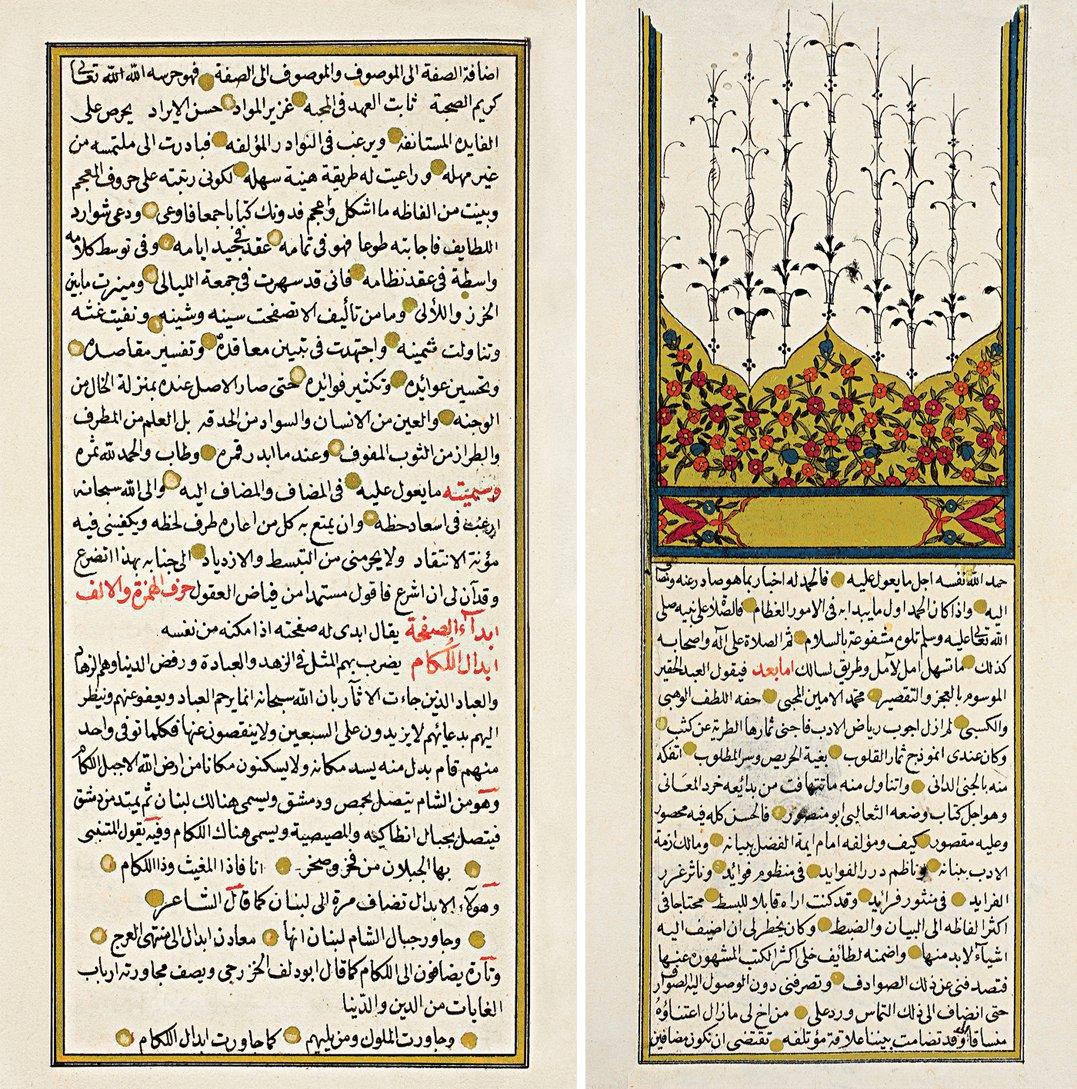 حمد الله نفسه اجل ما يعول عليه فالحمد له اخبار بما هو صادر عنه
اليه واذا كان الحمد اول ما يبداء به فى الامور العظام فالصلاة على نبيه صلى
الله تعالى عليه وسلم تلوه مشفوعة بالسلام ثم الصلاة على آله واصحابه
كذلك ما تسهل امل لآمل وطريق لسالك اما بعد فيقول العبد الحقير
الموسوم بالعجز والتقصير محمد الامين المحبى حفه اللطف الوهبى
والكسبى لم ازل اجوب رياض الادب فاجنى ثمارها الطرية عن كثب
وكان عندى انموذج ثمار القلوب بغية الحريص وسر المطلوب اتفكه
منه بالجنى الدانى واتناول منه ما تتهافت من بدائعه خرد المعانى
وهو اجل كتاب وضعه الثعالبى ابو منصور فالحسن كله فيه محصور
وعليه مقصور كيف ومؤلفه امام ايمة الفضل ببيانه ومالك ازمة
الادب ببنانه وناظم درر الفوايد فى منظوم فوايد وناثر غرر
الفرايد فى منثور فرايد وقد كنت اراه قابلا للبسط محتاجا فى
اكثر الفاظه الى البيان والضبط وكان يخطر لى ان اضيف اليه
اشيآء لا بد منها واضمنه لطايف خلى اكثر الكتب المشهوره عنها
فتصدفنى عن ذلك الصوادف وتصرفنى دون الوصول اليه الصوارف
حتى انضاف الى ذلك التماس ورد على من اخ لى ما زال اعتناؤه
منساقا وقد تضامت بيننا علاقة مؤتلفه تقتضى ان نكون مضافين
اضافة الصفة الى الموصوف والموصوف الى الصفة فهو حرسه الله تعالى
كريم الصحبة ثابت العهد فى المحبه غزير المواد حسن الايراد يحرص على
الفايده المستانفه ويرغب فى النوادر المؤلفه فبادرت الى ملتمسه من
غير مهله وراعيت له طريقة هينة سهله لكونى رتبته على حروف المعجم
وبينت من الفاظه ما اشكل واعجم فدونك كتابا جمعا فاوعى ودعى شوارد
اللطايف فاجابته طوعا فهو فى تمامه عقد فى جيد ايامه وفى توسط كلامه
واسطة فى عقد نظامه فانى قد سهرت فى جمعه الليالى وميزت ما بين
الخرز واللآلى وما من تأليف الا تصفحت سينه وشينه ونفيت غثه
وتناولت ثمينه واجتهدت فى تبيين معاقده وتفسير مقاصده
وتحسين عوائده وتكثير فوائده حتى صار الاصل عنده بمنزلة الخال من
الوجنه والعين من الانسان والسواد من الحدقه بل العلم من المطرف
والطراز من الثوب المفوف وعند ما ابدر قمره وطاب والحمد لله ثمره
وسميته ما يعول عليه فى المضاف والمضاف اليه والى الله سبحانه
ارغب فى اسعاد حظه وان يمتع به كل من اعاره طرف لحظه ويكفينى فيه
مؤنة الانتقاد ولا يحرمنى من التبسط والازدياد الى جنابه بهذا اتضرع
وقد آن لى ان اشرع فاقول مستمدا من فياض العقول حرف الهمزة والالف
ابدآء الصفحة يقال ابدى له صفحته اذا مكنه من نفسه
ابدال اللكام يضرب بهم المثل فى الزهد والعبادة ورفض الدنيا وهم الزهاد
والعباد الذين جاءت الاثآر بان الله سبحانه انما يرحم العباد ويعفو عنهم وينظر
اليهم بدعائهم لا يزيدون على السبعين ولا ينقصون عنها فكلما توفى واحد
منهم قام بدل منه يسد مكانه ولا يسكنون مكانا من ارض الله الا جبل اللكام
وهو من الشام يتصل بحمص ودمشق ويسمى هنالك لبنان ثم يمتد من دمشق
فيتصل بجبال انطاكيه والمصيصية ويسمى هناك اللكام وفيه يقول المتنبى
بها الجبلان من فخر وصخر انافا ذا المغيث وذا اللكام
وهؤلاء الابدال تضاف مرة الى لبنان كما قال الشاعر
وجاور جبال الشام لبنان انها معادن ابدال الى منتهى العرج
وتآرة يضافون الى اللكام كما قال ابو دلف الخزرجى ويصف مجاورته ارباب
الغايات من الدين والدنيا
وجاورت الملوك ومن يليهم كما جاورت ابدال اللكام